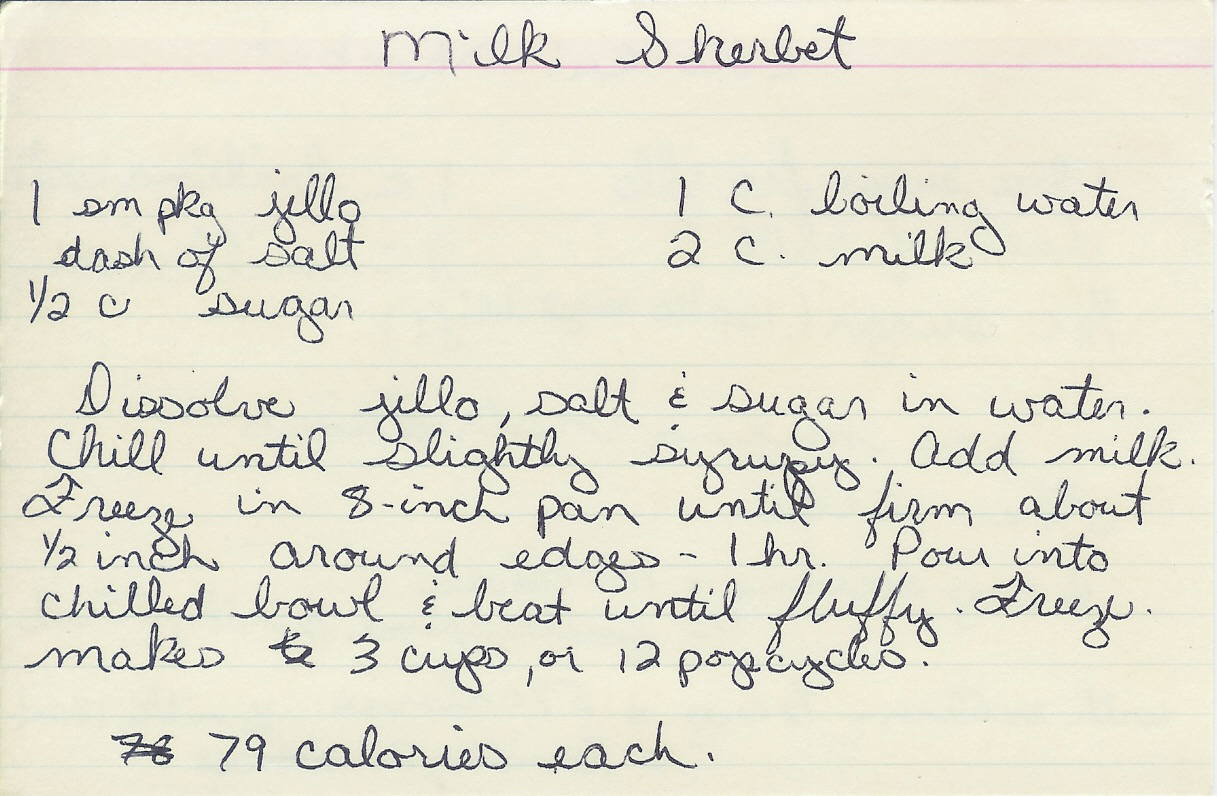 Milk Sherbet
1 sm pkg jello 1 C. boiling water
dash of salt 2 C. milk
1/2 c sugar
Dissolve jello, salt & sugar in water.
Chill until slightly syrupy. Add milk.
Freeze in 8-inch pan until firm about
1/2 inch around edges - 1 hr. Pour into
chilled bowl & beat until fluffy. Freeze.
makes 3 cups, or 12 popcycles.
79 calories each.